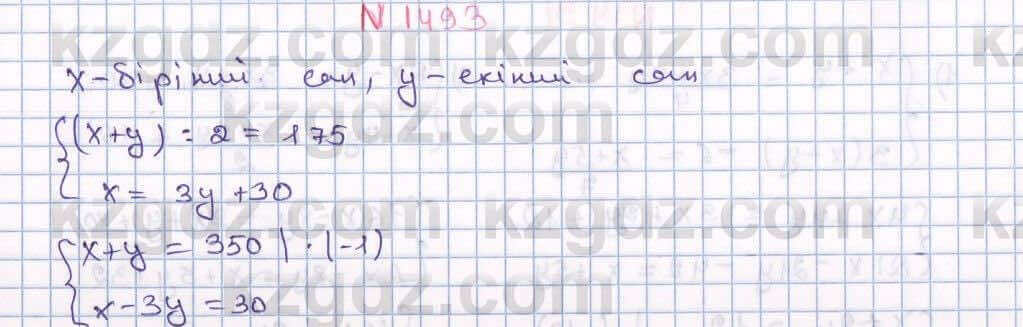 N 1493
x - бірінші сан, y - екінші сан
{(x+y) : 2 = 175
x = 3y + 30
{x+y = 350 | · (-1)
x - 3y = 30
kzgdz.com kzgdz.com
kzgdz.com
kzgdz.com kzgdz.com
kzgdz.com